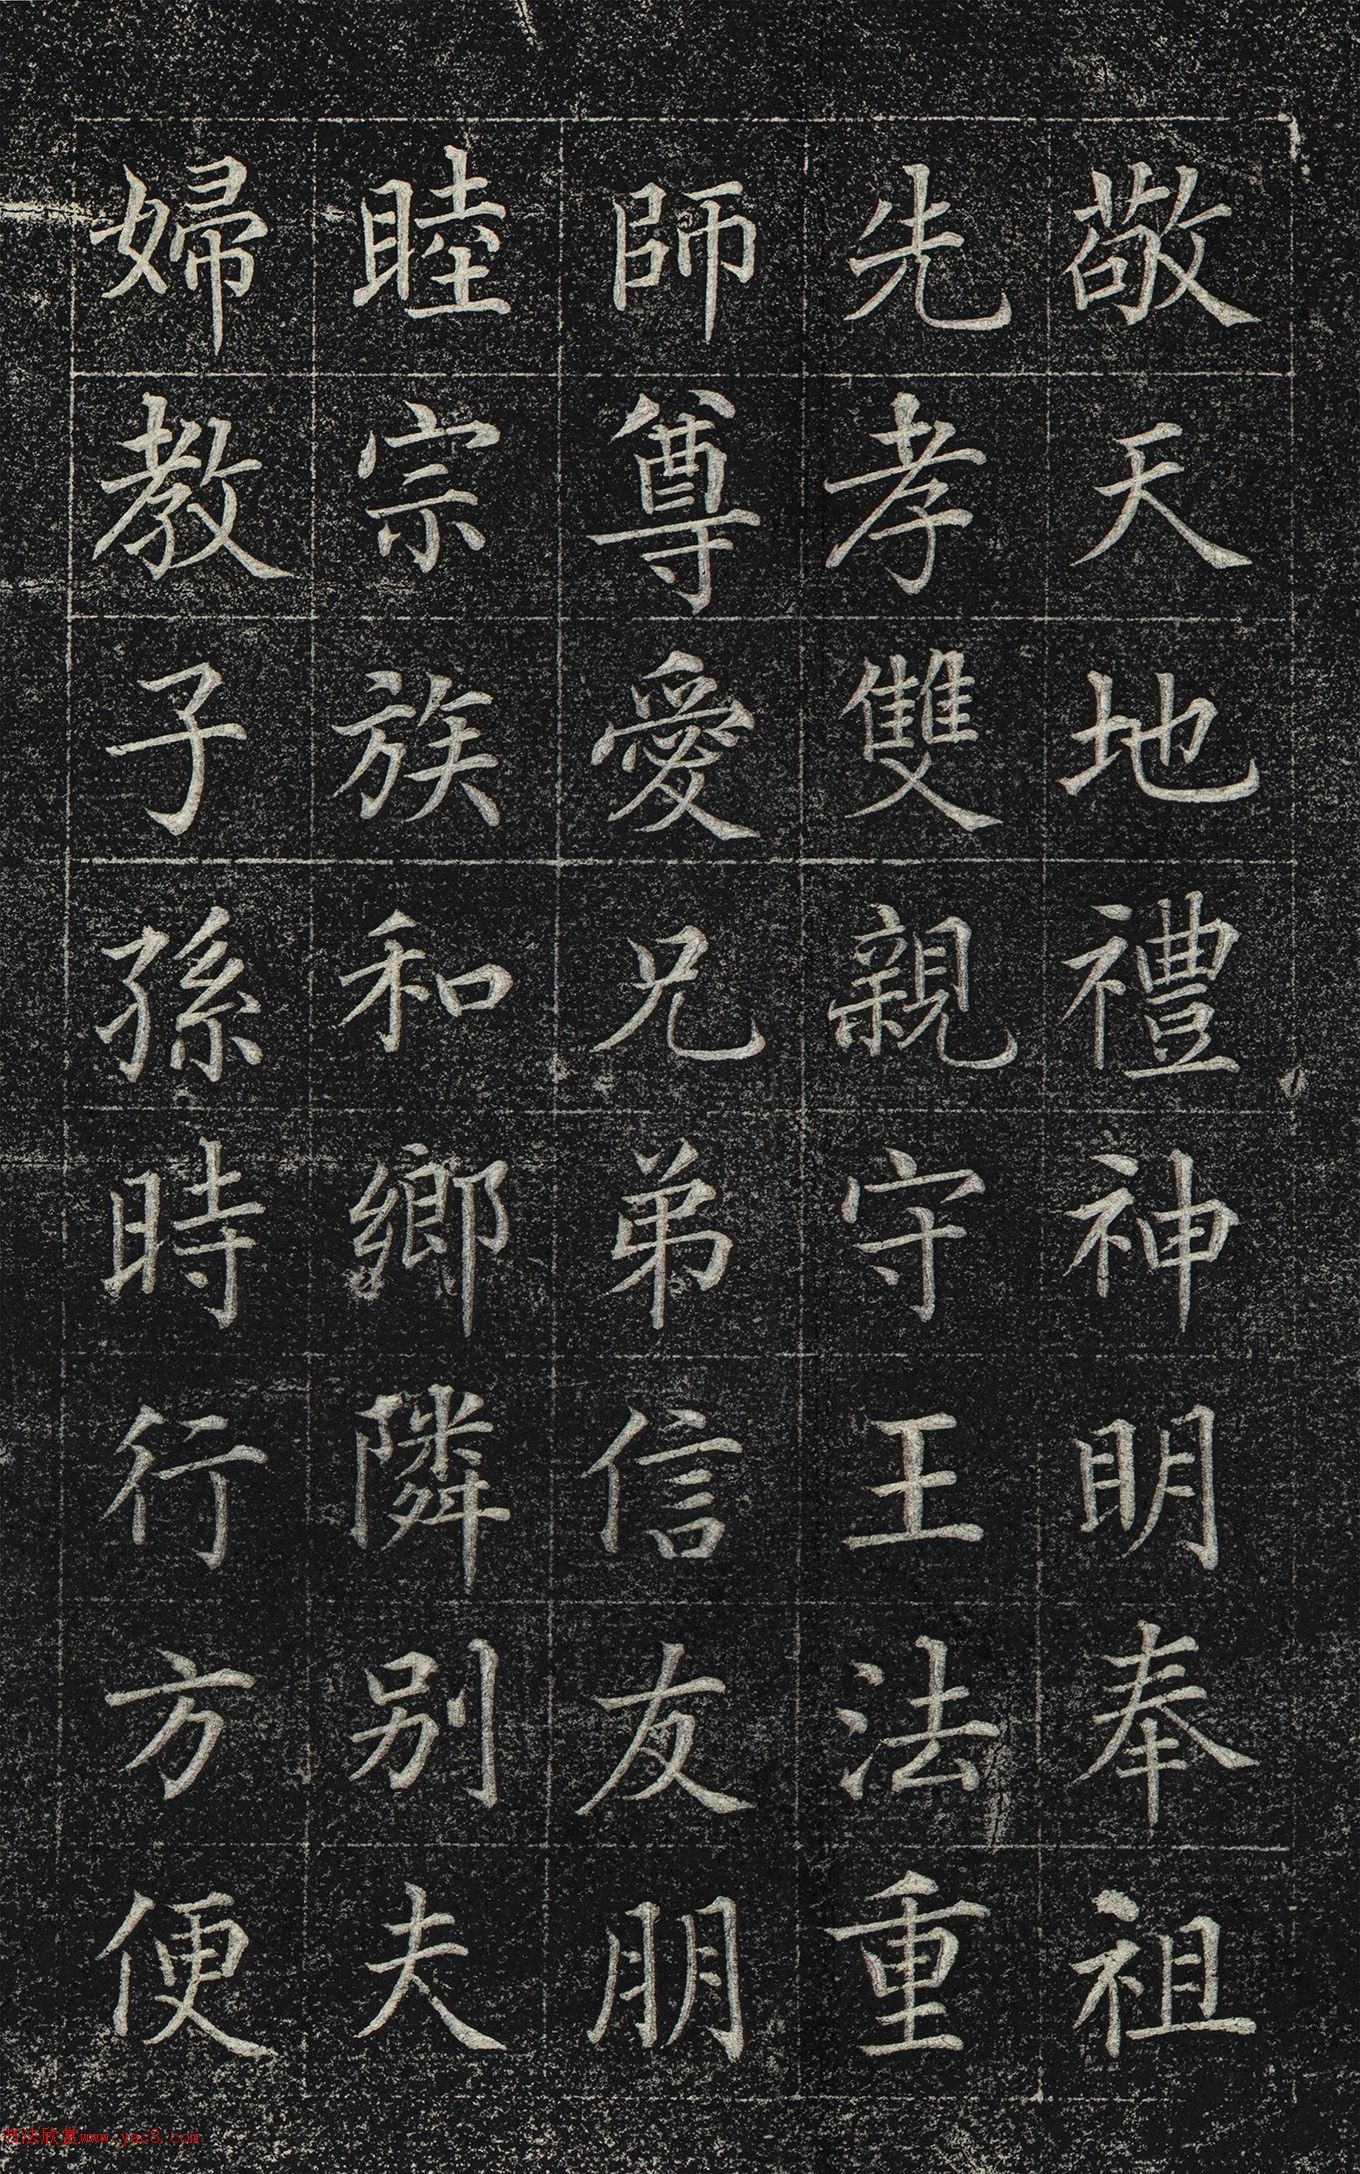 敬天地禮神明奉祖
先孝雙親守王法重
師尊愛兄弟信友朋
睦宗族和鄉隣別夫
婦教子孫時行方便
书法欣赏www.yac8.com